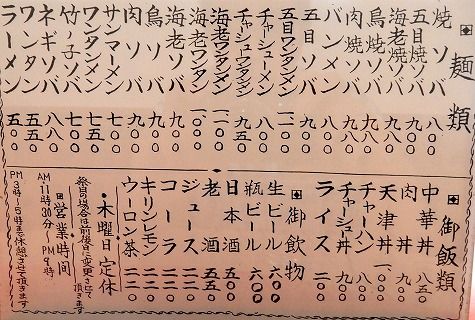 麺類
焼ソバ 八〇〇
五目焼ソバ 九〇〇
海老焼ソバ 九八〇
鳥焼ソバ 九八〇
肉焼ソバ 九八〇
バンメン 八〇〇
五目ソバ 九〇〇
五目ワンタンメン
チャーシューメン 九〇〇
チャーシュウワンタン 九五〇
海老ワンタンメン
海老ワンタン
海老ソバ 九〇〇
鳥ソバ 九〇〇
肉ソバ 九〇〇
サンマーメン 七〇〇
ワンタンメン 七五〇
竹ノ子ソバ 七〇〇
ネギソバ 八八〇
ワンタン 五五〇
ラーメン 五五〇
御飯類
中華丼 八五〇
肉丼 九〇〇
天津丼 一〇〇〇
チャーハン 八〇〇
チャーシュ丼 九〇〇
ライス 二〇〇
御飲物
生ビール 六〇〇
瓶ビール 六〇〇
日本酒 五〇〇
老酒 五五〇
ジュース 二二〇
コーラ 二二〇
キリンレモン 二二〇
ウーロン茶 二二〇
・木曜日定休
祭日の場合は前後日に変更させて頂きます
営業時間
AM11時30分〜PM9時
PM3時〜5時まで休憩させて頂きます